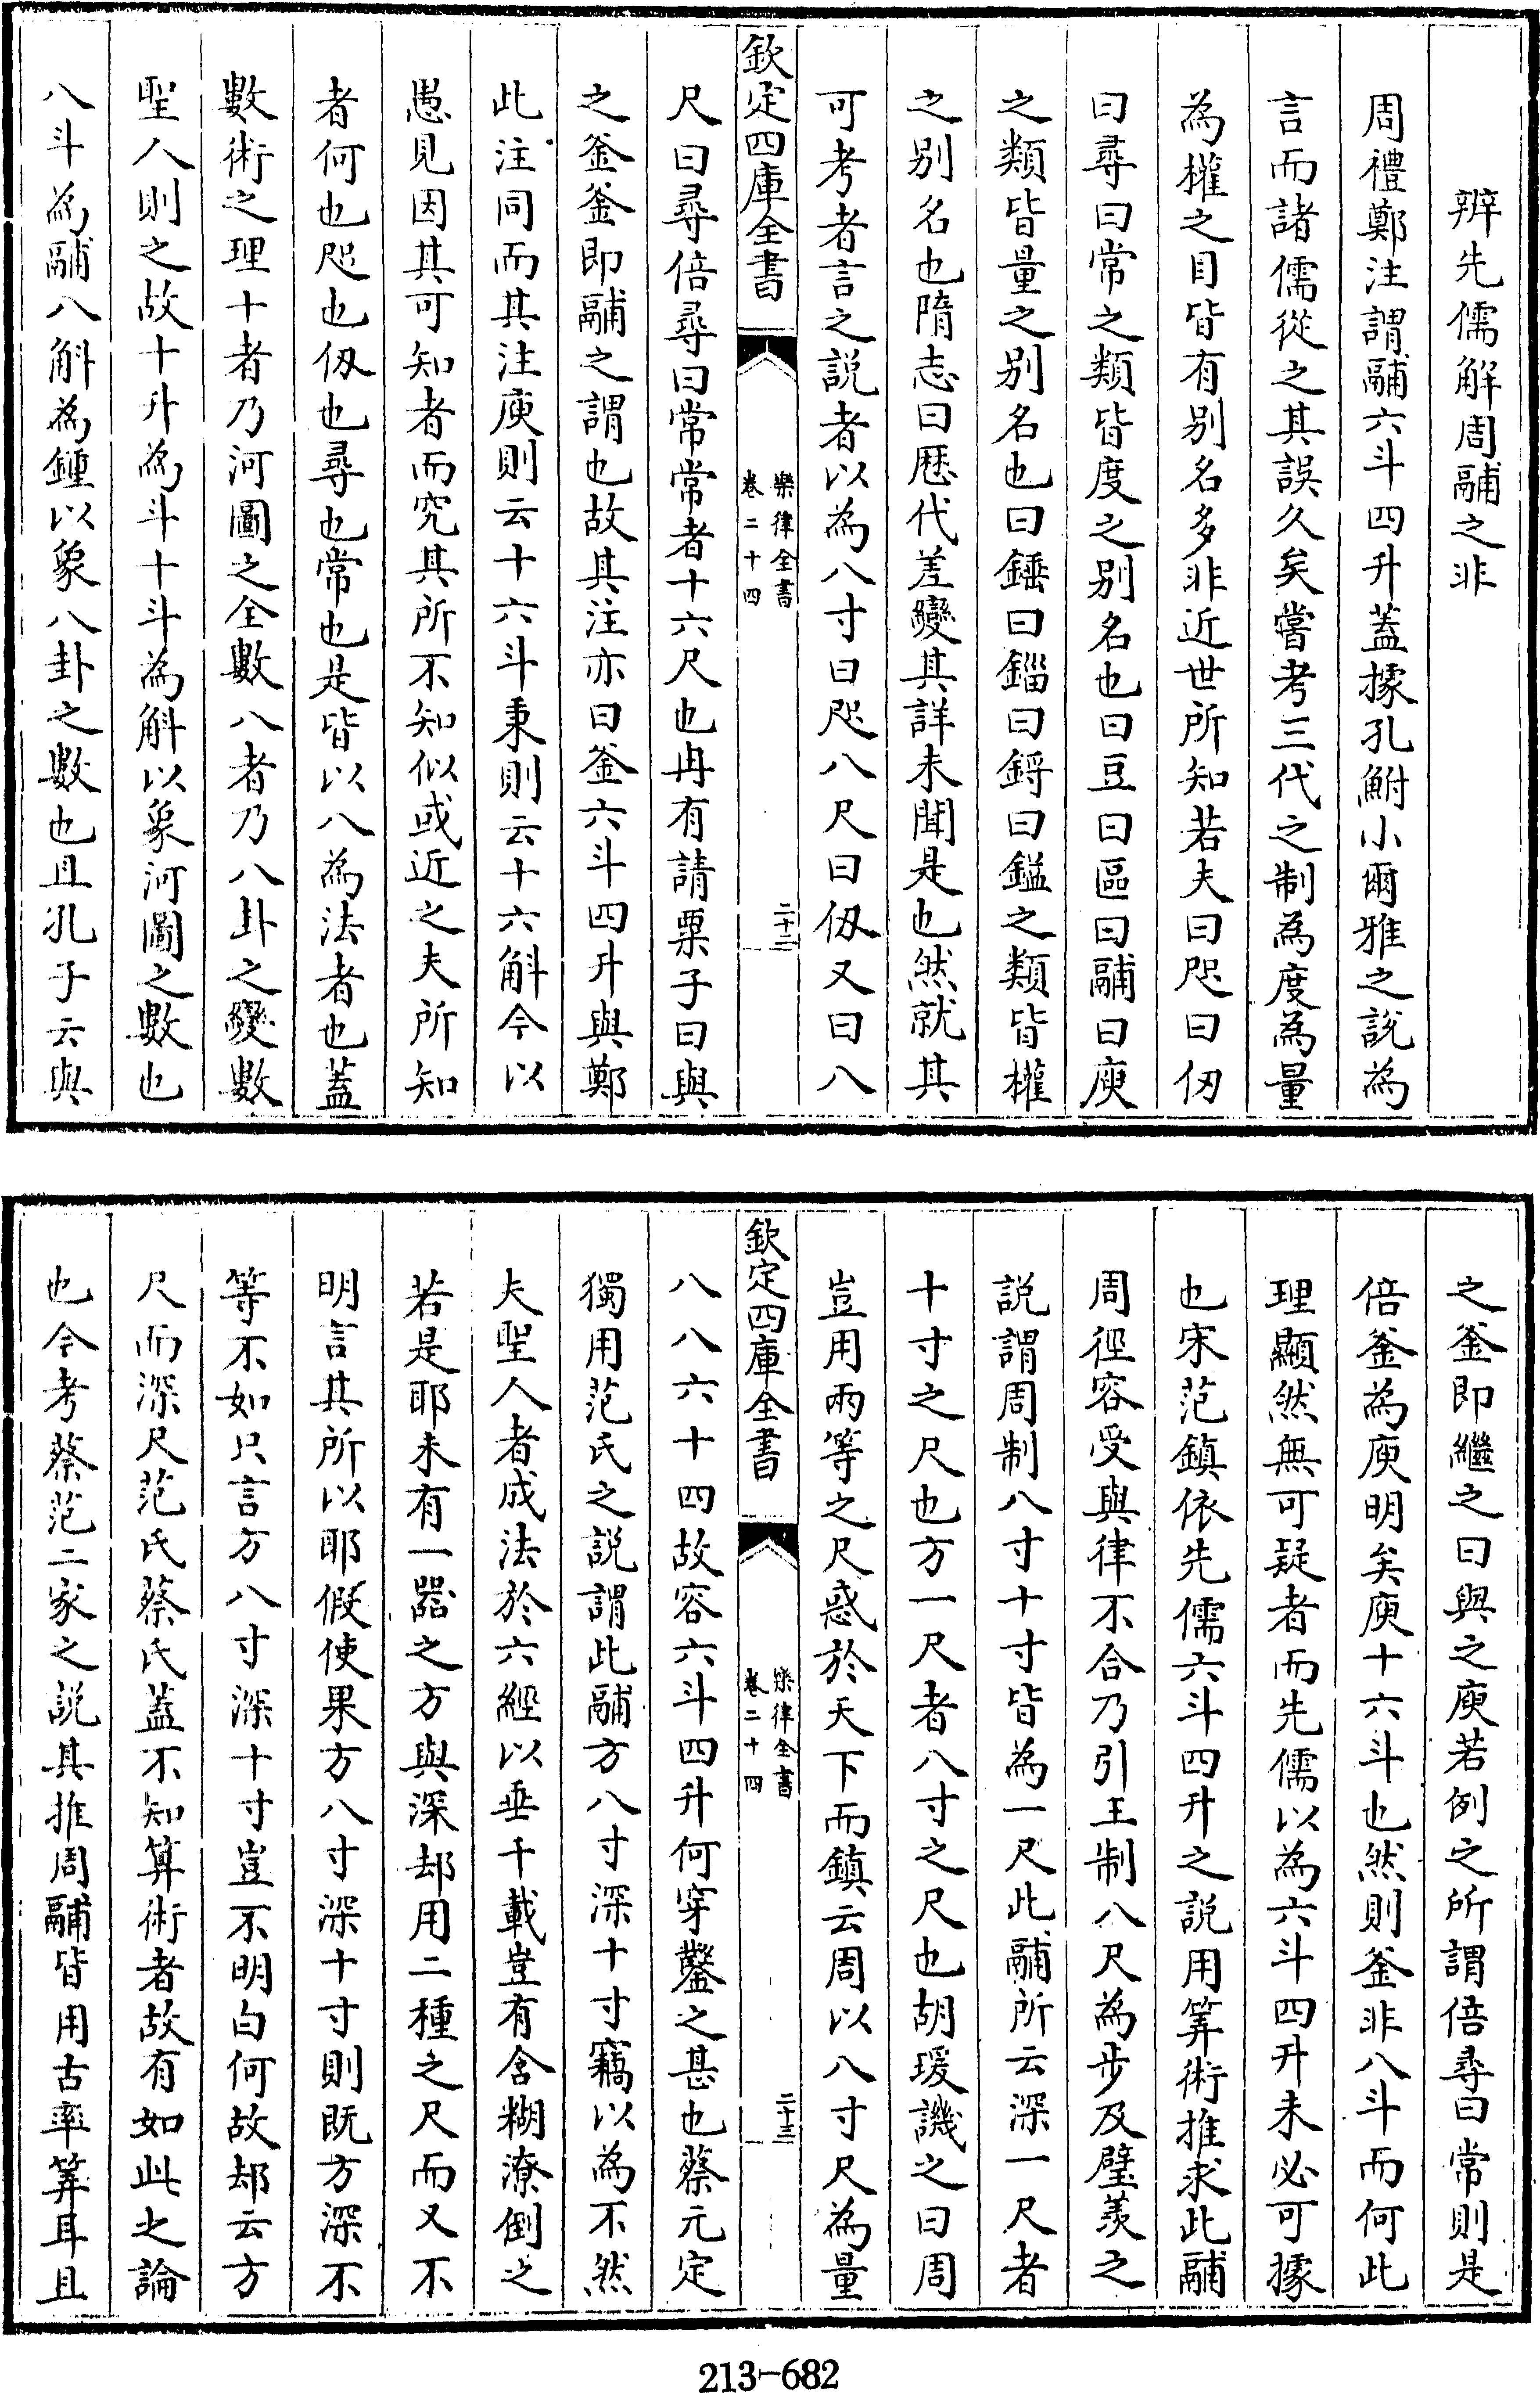 辨先儒解周鬴之非
周禮鄭注謂鬴六斗四升蓋據孔鮒小爾雅之說為
言而諸儒從之其誤久矣嘗考三代之制為度為量
為權之目皆有別名多非近世所知若夫曰咫曰仞
曰尋曰常之類皆度之別名也曰豆曰區曰鬴曰庾
之類皆量之別名也曰錘曰錙曰鋝曰鎰之類皆權
之別名也隋志曰歷代差變其詳未聞是也然就其
可考者言之說者以為八寸曰咫八尺曰仭又曰八
欽定四庫全書
樂律全書
卷二十四
二十二
尺曰尋倍尋曰常常者十六尺也冉有請粟子曰與
之釜釜即鬴之謂也故其注亦曰釜六斗四升與鄭
此注同而其注庾則云十六斗秉則云十六斛今以
愚見因其可知者而究其所不知似或近之夫所知
者何也咫也仭也尋也常也是皆以八為法者也蓋
數術之理十者乃河圖之全數八者乃八卦之變數
聖人則之故十升為斗十斗為斛以象河圖之數也
八斗為鬴八斛為鍾以象八卦之數也且孔子云與
之釜即繼之曰與之庾若例之所謂倍尋曰常則是
倍釜為庾明矣庾十六斗也然則釜非八斗而何此
理顯然無可疑者而先儒以為六斗四升未必可據
也宋范鎮依先儒六斗四升之說用筭術推求此鬴
周徑容受與律不合乃引王制八尺為步及璧羨之
說謂周制八寸十寸皆為一尺此鬴所云深一尺者
十寸之尺也方一尺者八寸之尺也胡瑗譏之曰周
豈用兩等之尺惑於天下而鎮云周以八寸尺為量
欽定四庫全書
樂律全書
卷二十四
二十三
八八六十四故容六斗四升何穿鑿之甚也蔡元定
獨用范氏之說謂此鬴方八寸深十寸竊以為不然
夫聖人者成法於六經以垂千載豈有含糊潦倒之
若是耶未有一器之方與深却用二種之尺而又不
明言其所以耶假使果方八寸深十寸則既方深不
等不如只言方八寸深十寸豈不明白何故却云方
尺而深尺范氏蔡氏蓋不知算術者故有如此之論
也今考蔡范二家之說其推周鬴皆用古率筭耳且
213-682